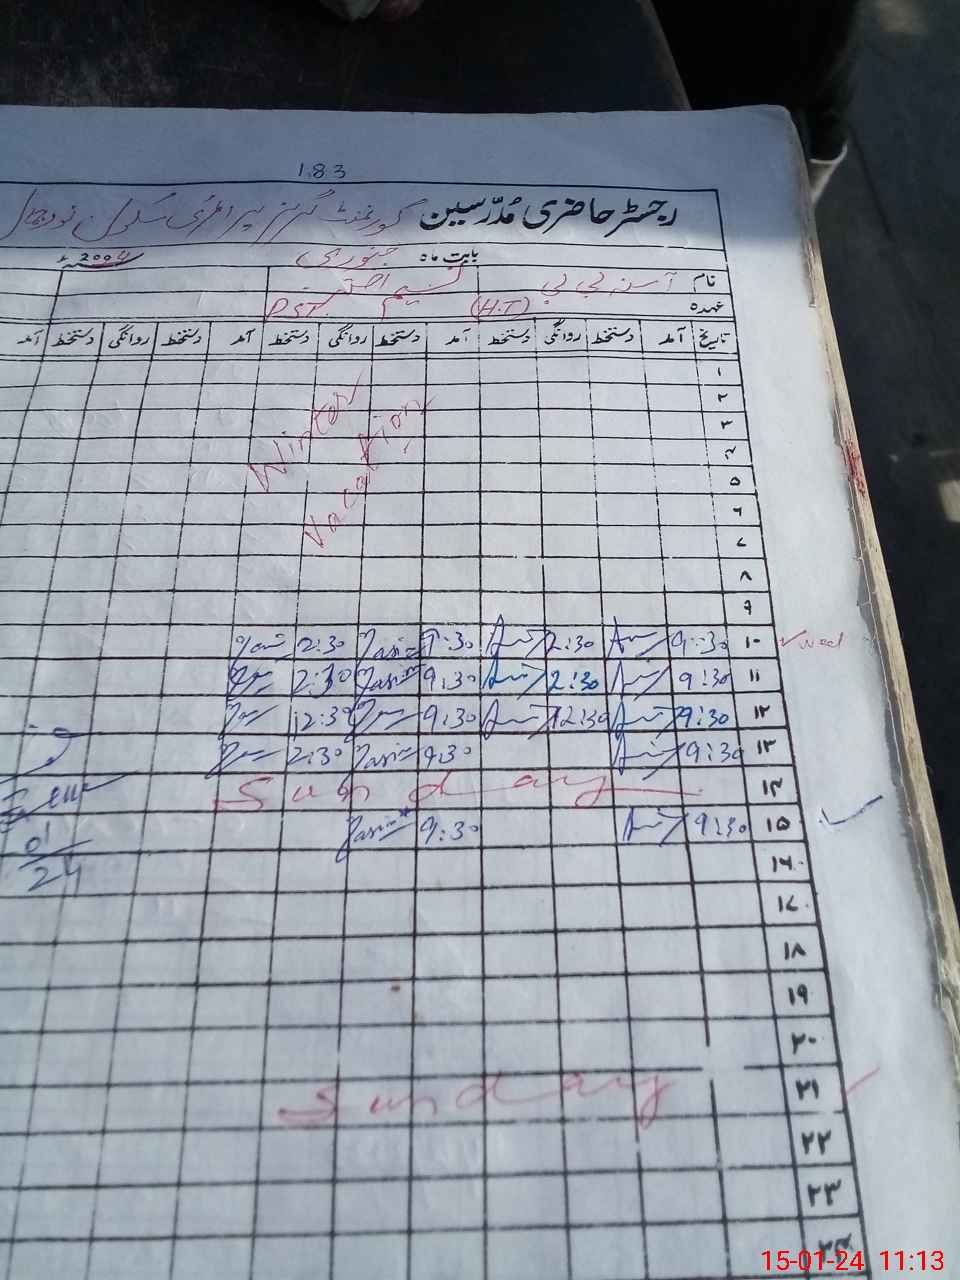 183
رجسٹر حاضری مدرسین گورنمنٹ گرلز پرائمری سکول
بابت ماہ جنوری
نام آسنہ بی بی نسیم اختر
عہدہ (H.T) PST
تاریخ آمد دستخط روانگی دستخط آمد دستخط روانگی دستخط آمد دستخط روانگی دستخط آمد
۱
۲
۳
۴
۵
۶
۷
۸
۹
Winter
Vacation
۱۰ 9:30 2:30 9:30 2:30
۱۱ 9:30 2:30 9:30 2:30
۱۲ 9:30 12:30 9:30 12:30
۱۳ 9:30 9:30 2:30
۱۴ Sunday
۱۵ 9:30 9:30
01
24
۱۶
۱۷
۱۸
۱۹
۲۰
۲۱ Sunday
۲۲
۲۳
۲۴
15-01-24 11:13